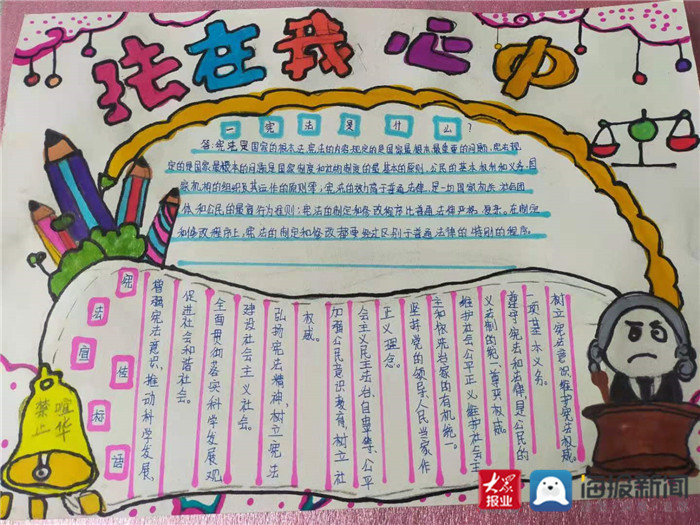 法在我心中
一、宪法是什么?
答:宪法是国家的根本法,宪法的内容规定的是国家最根本最重要的问题,宪法规
定的是国家最根本的问题是国家制度和社会制度的最基本的原则,公民的基本权利和义务,国
家机构的组织及其运作的原则等;宪法的效力高于普通法律,是一切国家机关、社会团
体和公民的最高行为准则;宪法的制定和修改程序比普通法律严格、复杂。在制定
和修改程序上,宪法的制定和修改都要经过区别于普通法律的特别的程序。
树立宪法意识维护宪法权威
一项基本义务。
遵守宪法和法律,是公民的
义法制的统一、尊严、权威。
维护社会公平正义维护社会主
主和依法治国的有机统一。
坚持党的领导人民当家作
正义理念。
会主义民主法治、自由平等、公平
加强公民意识教育,树立社
权威。
弘扬宪法精神,树立宪法
建设社会主义社会。
全面贯彻落实科学发展观
促进社会和谐社会。
增强宪法意识,推动科学发展,
宪法宣传标语
禁止喧华
大众报业
海报新闻